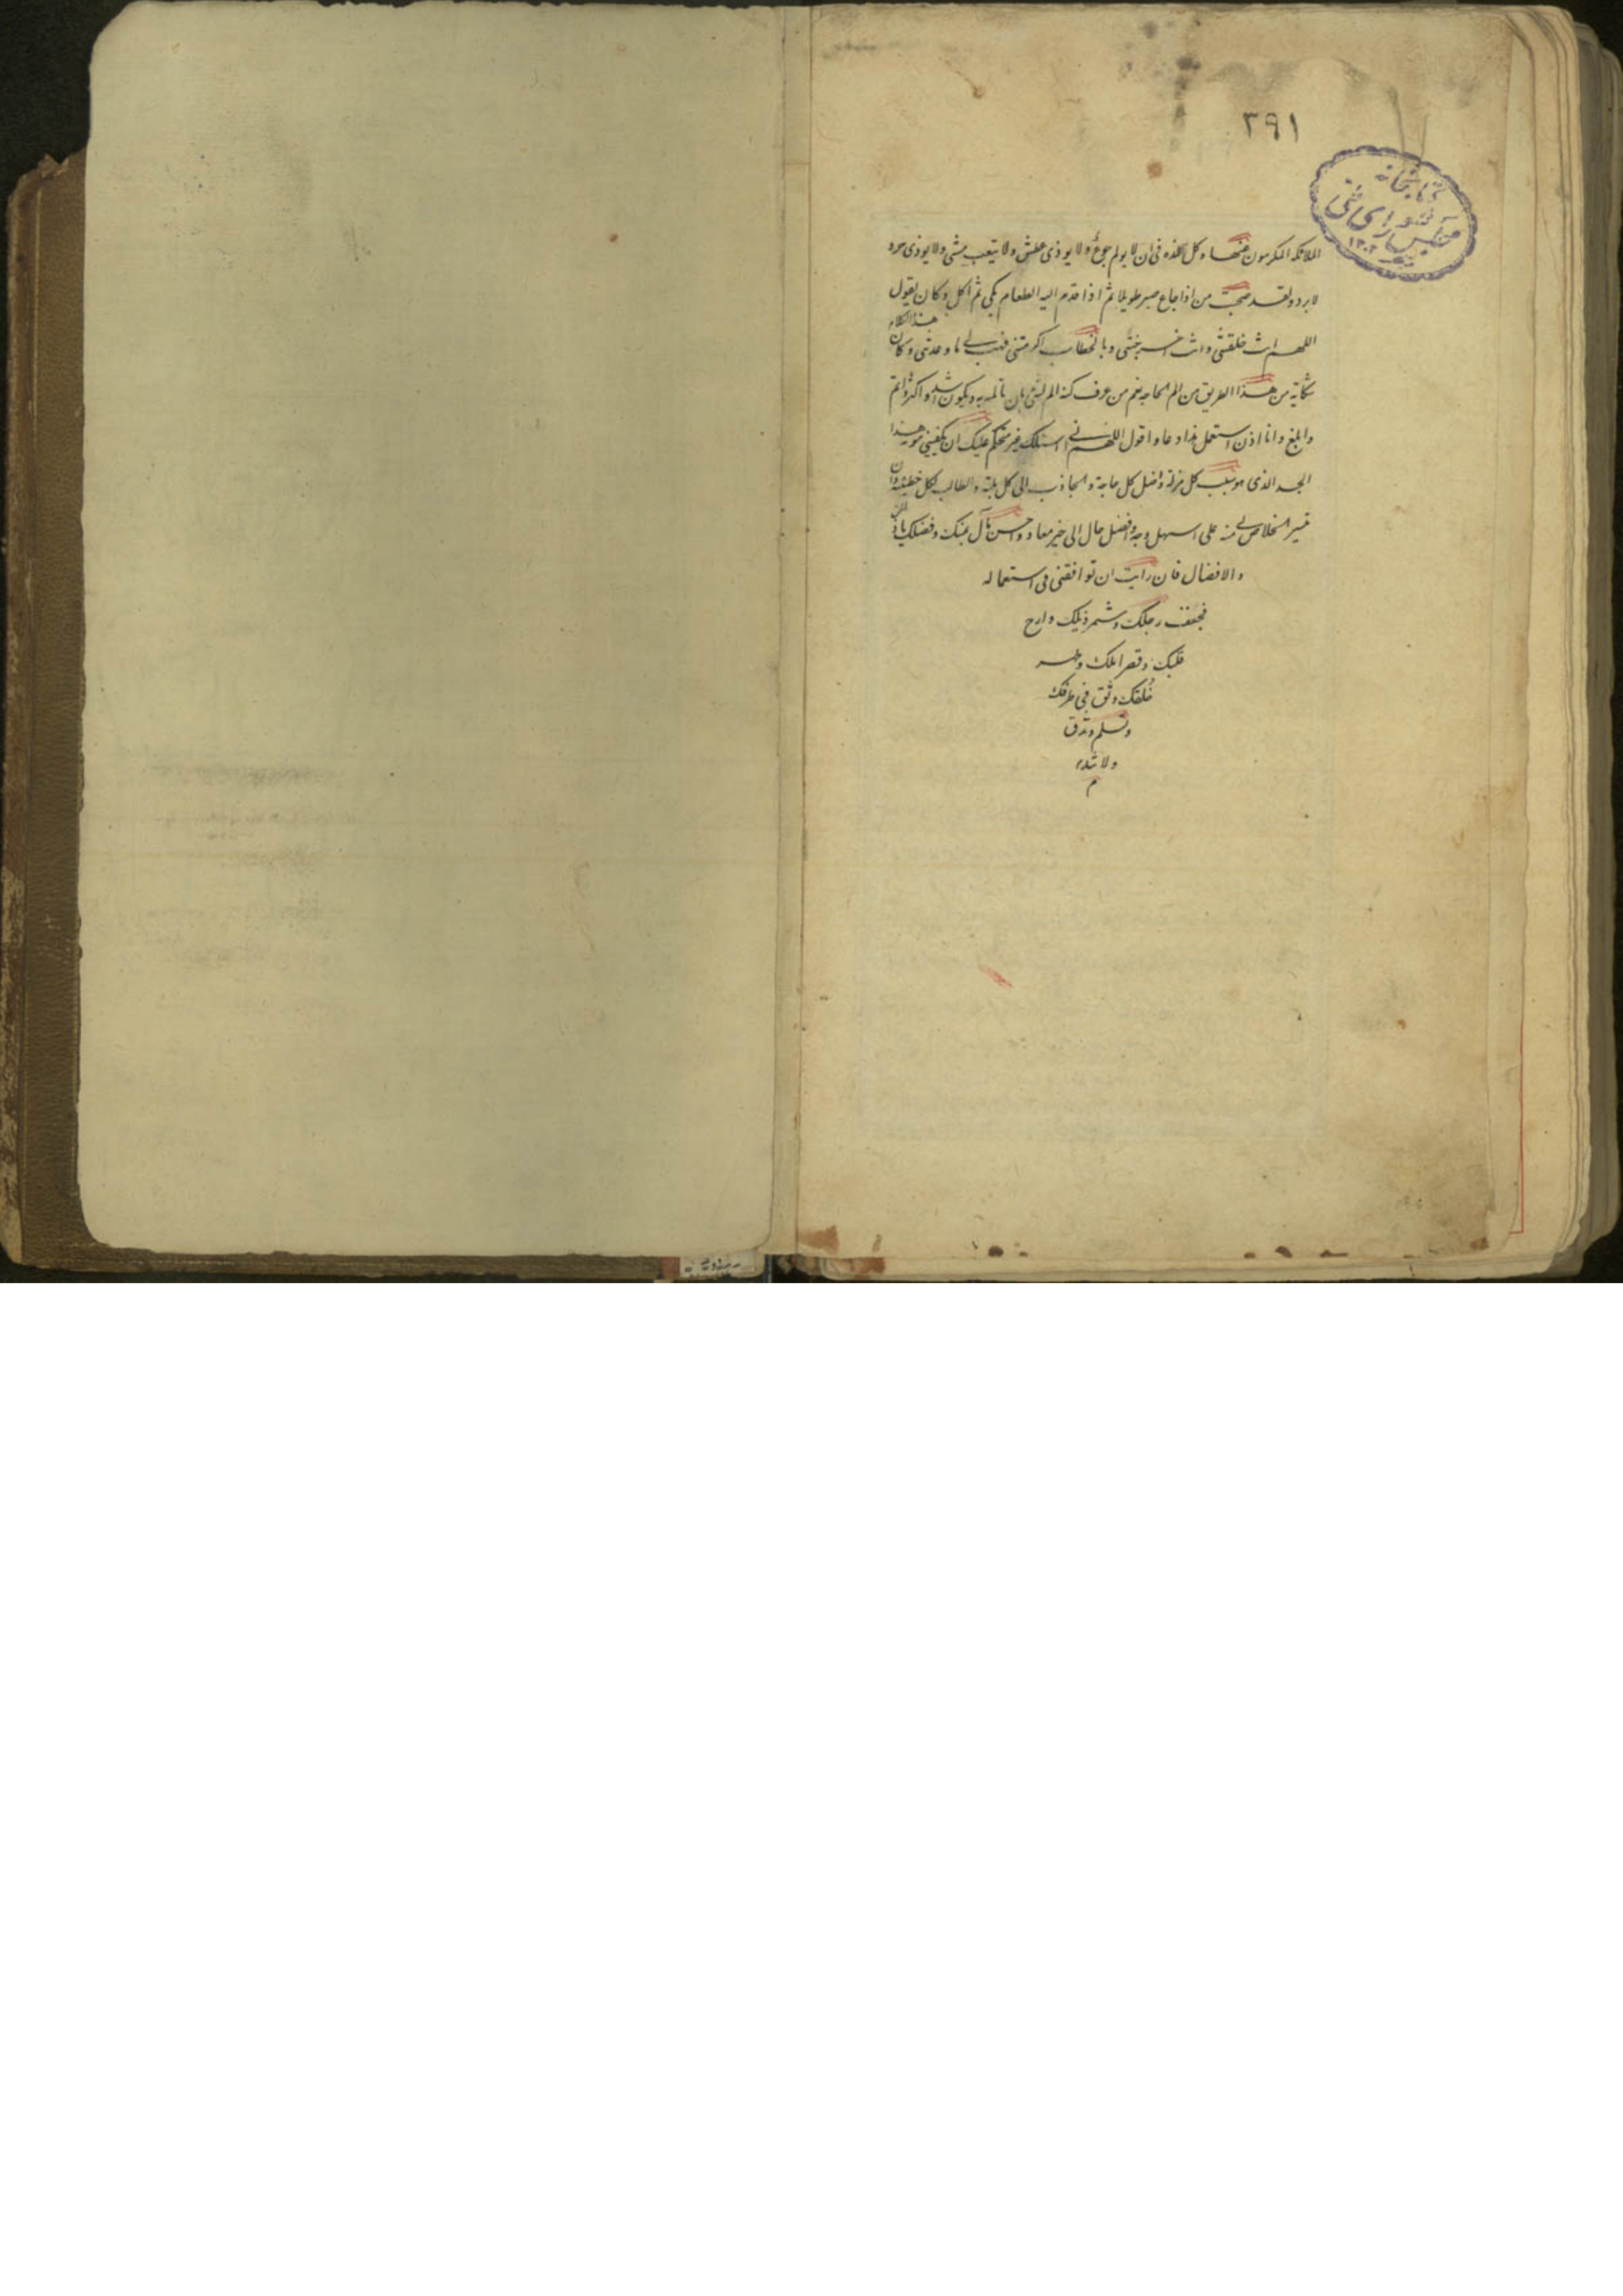 ٢٩١
كتابخانه
مجلس شورای ملی
١٣٠٢
الملائكه المكرمون عنها وكل لذه فی ان لا يولم جوع ولا يوذی عطش ولا يتعب مشی ولا يوذی حر و
لا برد ولقد صحبت من اذا جاع صبر طويلا ثم اذا قدم اليه الطعام بكی ثم اكل وكان يقول
هذا الكلام
اللهم انت خلقتنی وانت وبالخطاب اكرمتنی فهب لی ما وعدتنی وكان
شكاية من هذا الطريق من الم الحاجه نعم من عرف كنه الم بان تالمه به ويكون اشد واكثر واتم
وابلغ وانا اذن استعمل هذا دعا واقول اللهم انی اسئلك غير متحكم عليك ان تكفينی مونه هذا
الجسد الذی هو سبب كل مزلة واصل كل حاجة والجاذب الی كل بلية والطالب لكل خطيئة وان
تيسر الخلاص لی منه علی اسهل وجه وافضل حال الی خير معاد واحسن مآل بمنك وفضلك يا ذا المن
والافضال فان رايت ان توافقنی فی استعماله
فخفف رجلك وشمر ذيلك وارح
قلبك وقصر املك وطهر
خلقك وثق فی طرقك
وتسلم وتذق
ولا
م